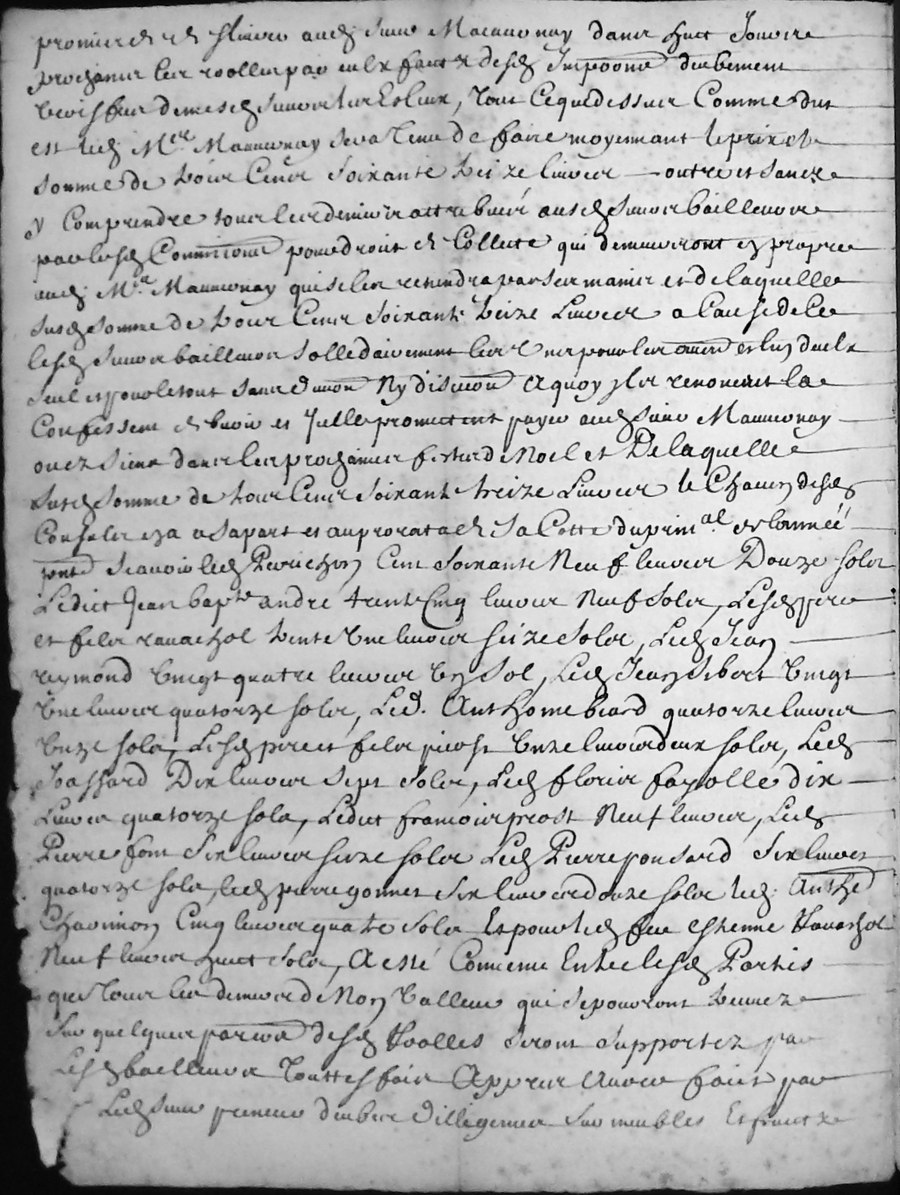 promis et deslivrer audit sieur Maisonnay dans huict Jours
prochains les roolles par eulx faictz desdits Impoons deubement
veriffiez de mesd sieurs les Esleux, tout ce que dessus Comme dict
est led Mre Maisonnay sera tenu de faire moyennant le prix et
somme de trois Cens Soixante treize livres outre et sans
y Comprendre tous les deniers attribuez ausd sieurs bailleurs
par lesd Commissions pour droit de Collecte qui demeureront en propre
aud Mre Maisonnay qui se les retiendra par ses mains et de laquelle
susd somme de trois Cens soixante treize Livres a cause de ce
lesd sieurs bailleurs sollidairement les uns pour les autres et lung deulx
seul et pour le tout sans division Ny discution a quoy Ils renoncent la
Confessent devoir et Icelle promettent payer aud sieur Maisonnay
aux dans les prochaines festes de Noel et De laquelle
susd somme de trois Cens soixante treize Livres le Chacun desd
Consulz a sa part et au prorata de sa Cotte du prinal et lannée
scavoir led Cent soixante Neuf livres Douze solz
Ledict Jean bapte andré trente Cinq livres Neuf Solz, Lesd pere
et filz ravachol trente une livres seize Solz, Led Jean
reymond vingt quatre livres ung Sol, Led Jean Sibert vingt
une livres quatorze solz, Led. Anthoine biard quatorze livres
unze solz, Lesd pere et filz picost unze livres deux solz, Led
Joassard Dix livres sept Solz, Led floris fayolle dix
Livres quatorze solz, Ledict francois prost Neuf livres, Led
Pierre font six livres seize solz Led Pierre ponsard six livres
quatorze solz, led pierre gonnet six livres douze solz led. Anthe
Chavinon Cinq livres quatre Solz Et pour led feu estienne Ravachol
Neuf livres huict Solz, A esté Convenu Entre lesd Parties
que tous les deniers de Non valleur qui se pourront trouver
sur quelques desd Roolles seront supportez par
Lesd bailleurs touttesfois Appres avoir faict par
Led sieur preneur deubes dilligences sur meubles Et fruictz